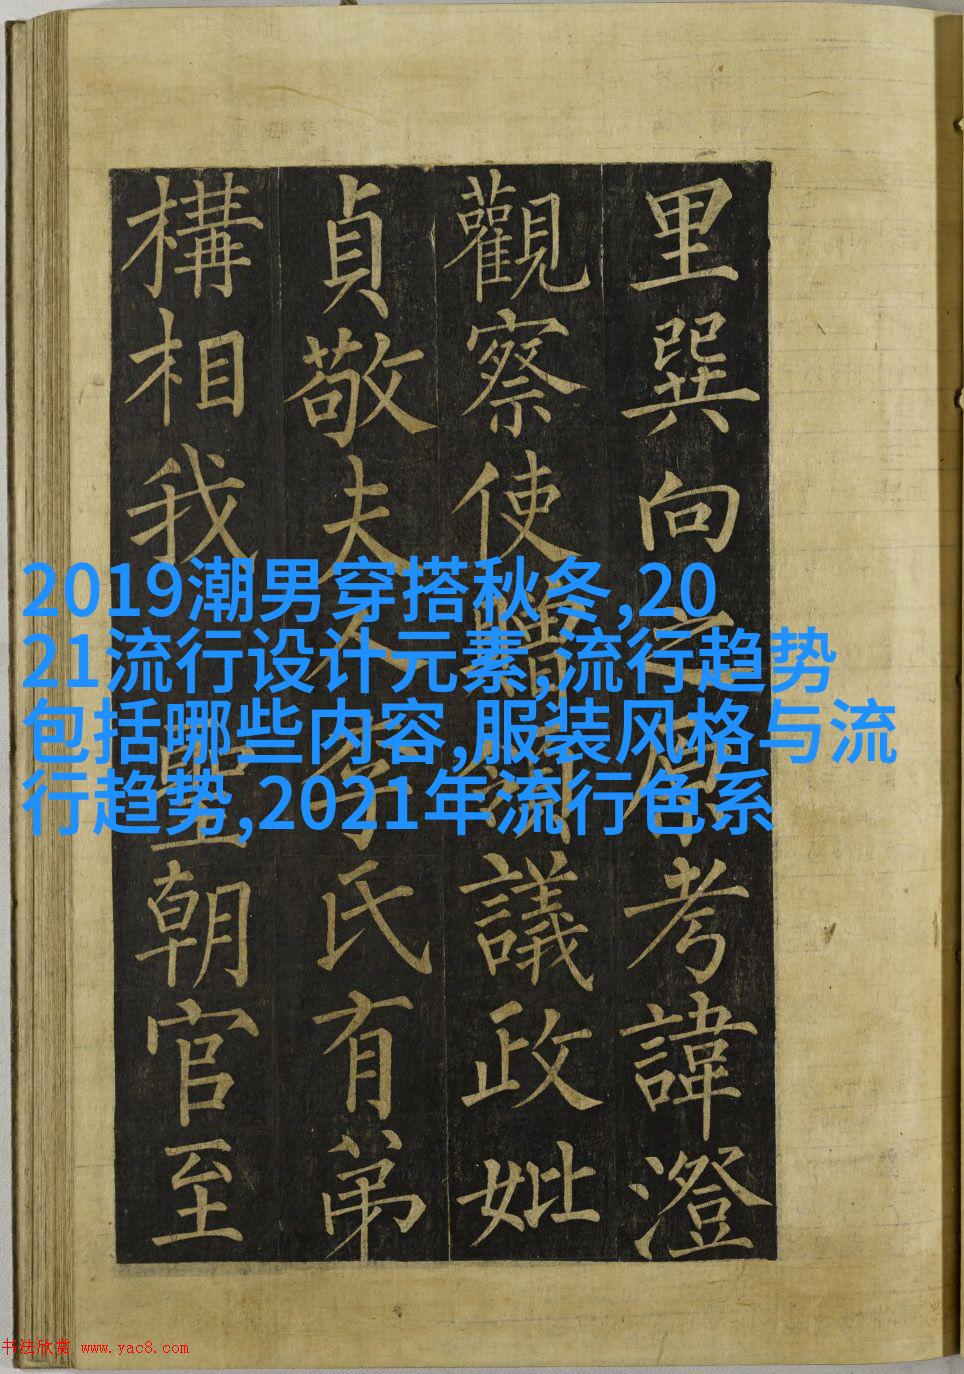 里巽向之原考諱澄
觀察使贈諫議政妣
貞敬夫人李氏有弟
構相我聖朝官至
2019潮男穿搭秋冬,20
21流行设计元素,流行趋势
包括哪些内容,服装风格与流
行趋势,2021年流行色系
书法欣赏 www.yac8.com